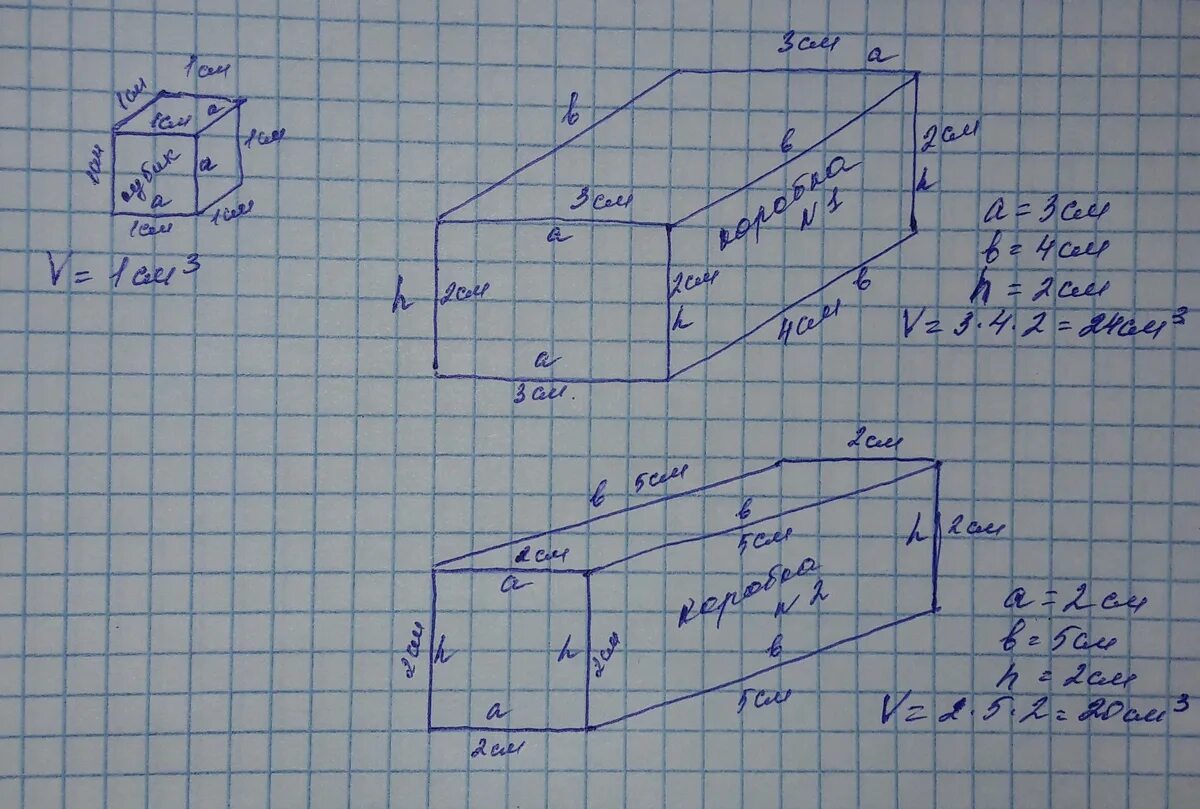 1см
1см
1см
a
1см
1см
кубик
a
a
1см
1см
V = 1см³
3см
a
в
в
2см
h
коробка
N1
3см
a
h
2см
2см
h
в
4см
a
3см.
a = 3см
в = 4см
h = 2см
V = 3·4·2 = 24см³
2см
в 5см
в
5см
h 2см
2см
a
коробка
N 2
2см
h
h
2см
в
5см
a
2см
a = 2см
в = 5см
h = 2см
V = 2·5·2 = 20см³